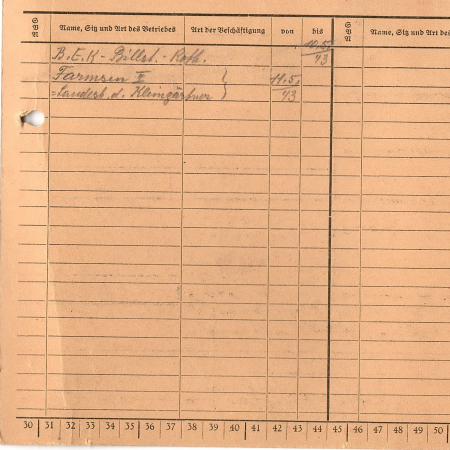 GBN Name, Sitz und Art des Betriebes Art der Beschäftigung von bis GBN Name, Sitz und Art des
B. E. K - Billst. - Roth. 10.5. 43
Farmsen E } 11.5. 43
=Landesb. d. Kleingärtner }
30 31 32 33 34 35 36 37 38 39 40 41 42 43 44 45 46 47 48 49 50